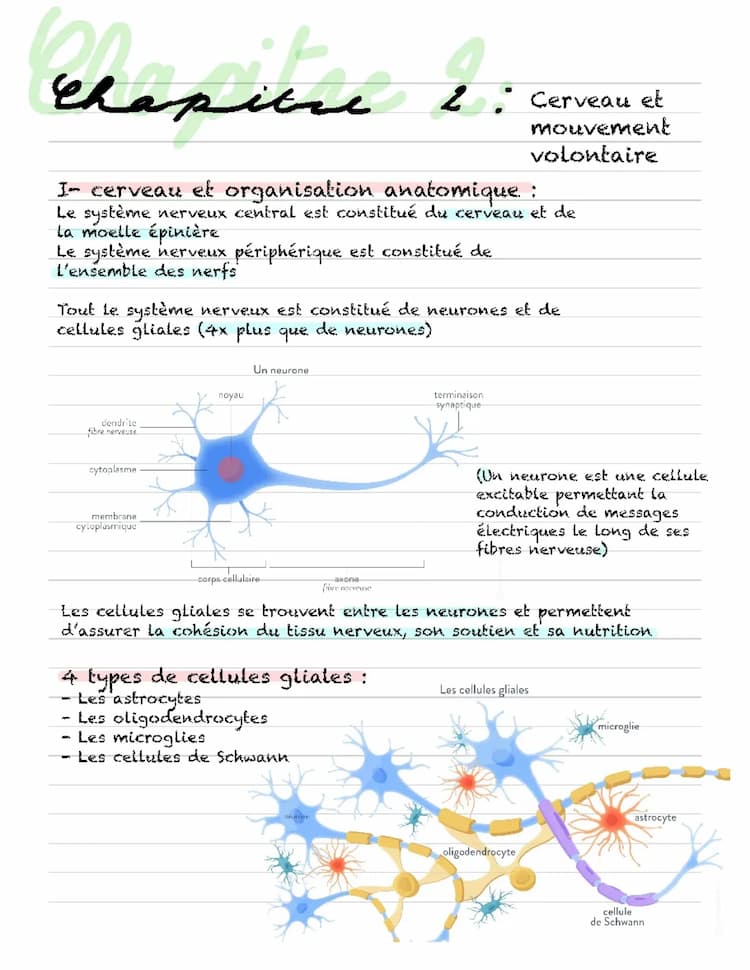 Chapitre 2 :
Chapitre 2 : Cerveau et
mouvement
volontaire
I- cerveau et organisation anatomique :
Le système nerveux central est constitué du cerveau et de
la moelle épinière
Le système nerveux périphérique est constitué de
l'ensemble des nerfs
Tout le système nerveux est constitué de neurones et de
cellules gliales (4x plus que de neurones)
Un neurone
noyau
terminaison
synaptique
dendrite
fibre nerveuse
cytoplasme
membrane
cytoplasmique
corps cellulaire
axone
fibre nerveuse
(Un neurone est une cellule
excitable permettant la
conduction de messages
électriques le long de ses
fibres nerveuse)
Les cellules gliales se trouvent entre les neurones et permettent
d'assurer la cohésion du tissu nerveux, son soutien et sa nutrition
4 types de cellules gliales :
- Les astrocytes
- Les oligodendrocytes
- Les microglies
- Les cellules de Schwann
Les cellules gliales
microglie
neurone
astrocyte
oligodendrocyte
cellule
de Schwann